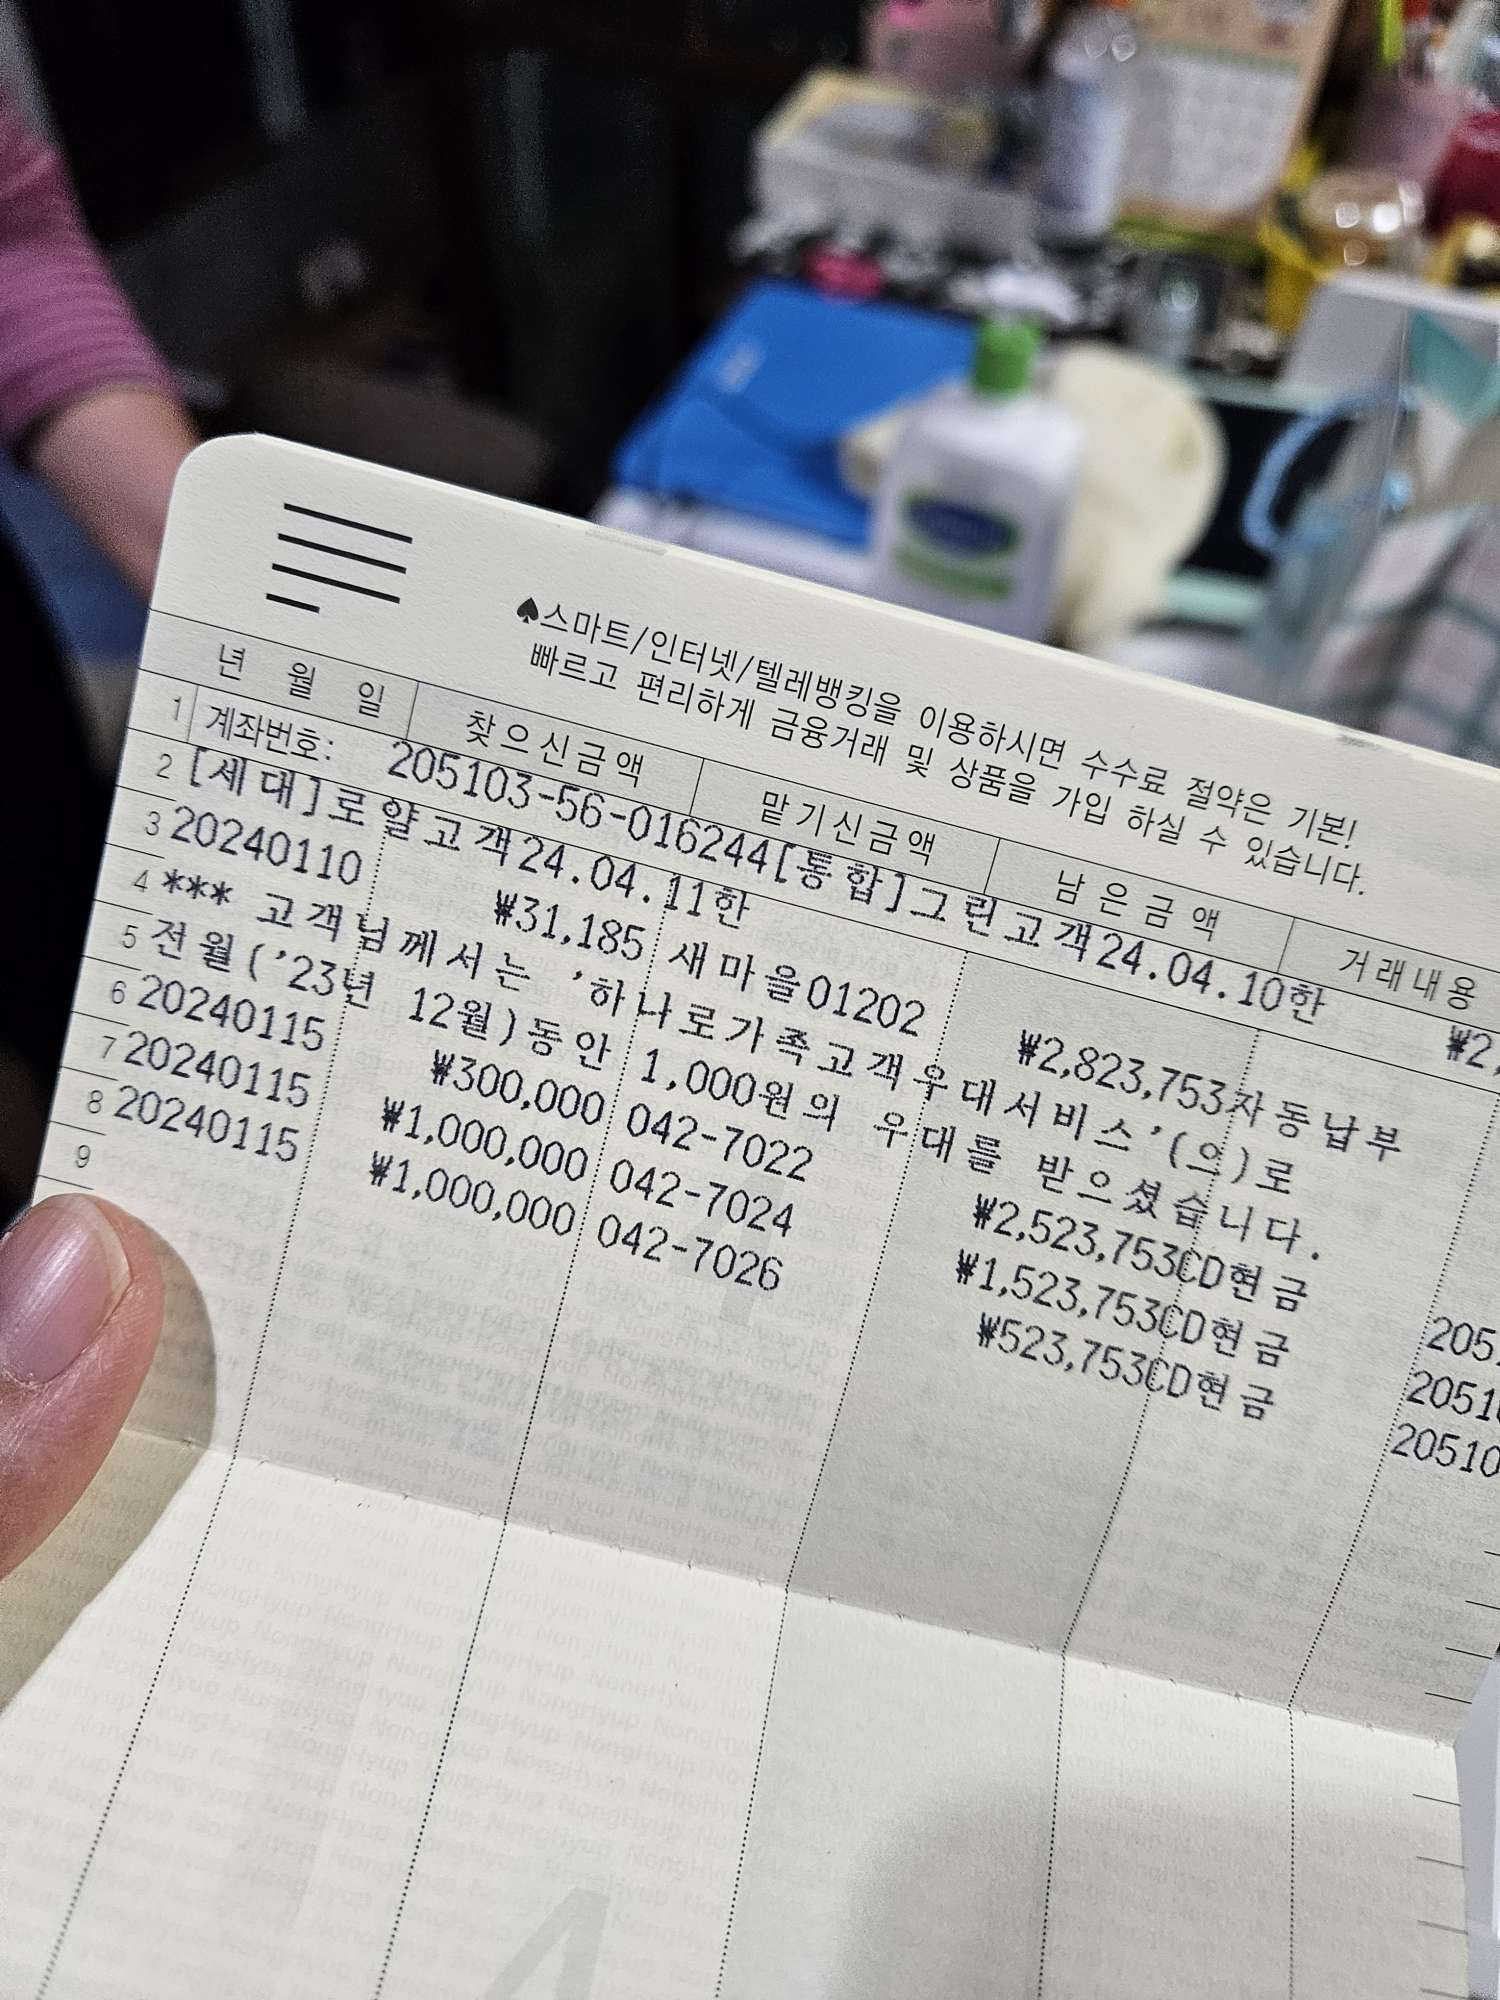 ♠스마트/인터넷/텔레뱅킹을 이용하시면 수수료 절약은 기본!
빠르고 편리하게 금융거래 및 상품을 가입 하실 수 있습니다.
년 월 일 찾으신금액 맡기신금액 남은금액 거래내용
1 계좌번호: 205103-56-016244[통합]그린고객24.04.10한
2 [세대]로얄고객24.04.11한 ₩2,
3 20240110 ₩31,185 새마을01202 ₩2,823,753자동납부
4 *** 고객님께서는 '하나로가족고객우대서비스'(으)로
5 전월('23년 12월)동안 1,000원의 우대를 받으셨습니다.
6 20240115 ₩300,000 042-7022 ₩2,523,753CD현금 205
7 20240115 ₩1,000,000 042-7024 ₩1,523,753CD현금 2051
8 20240115 ₩1,000,000 042-7026 ₩523,753CD현금 20510
9
4